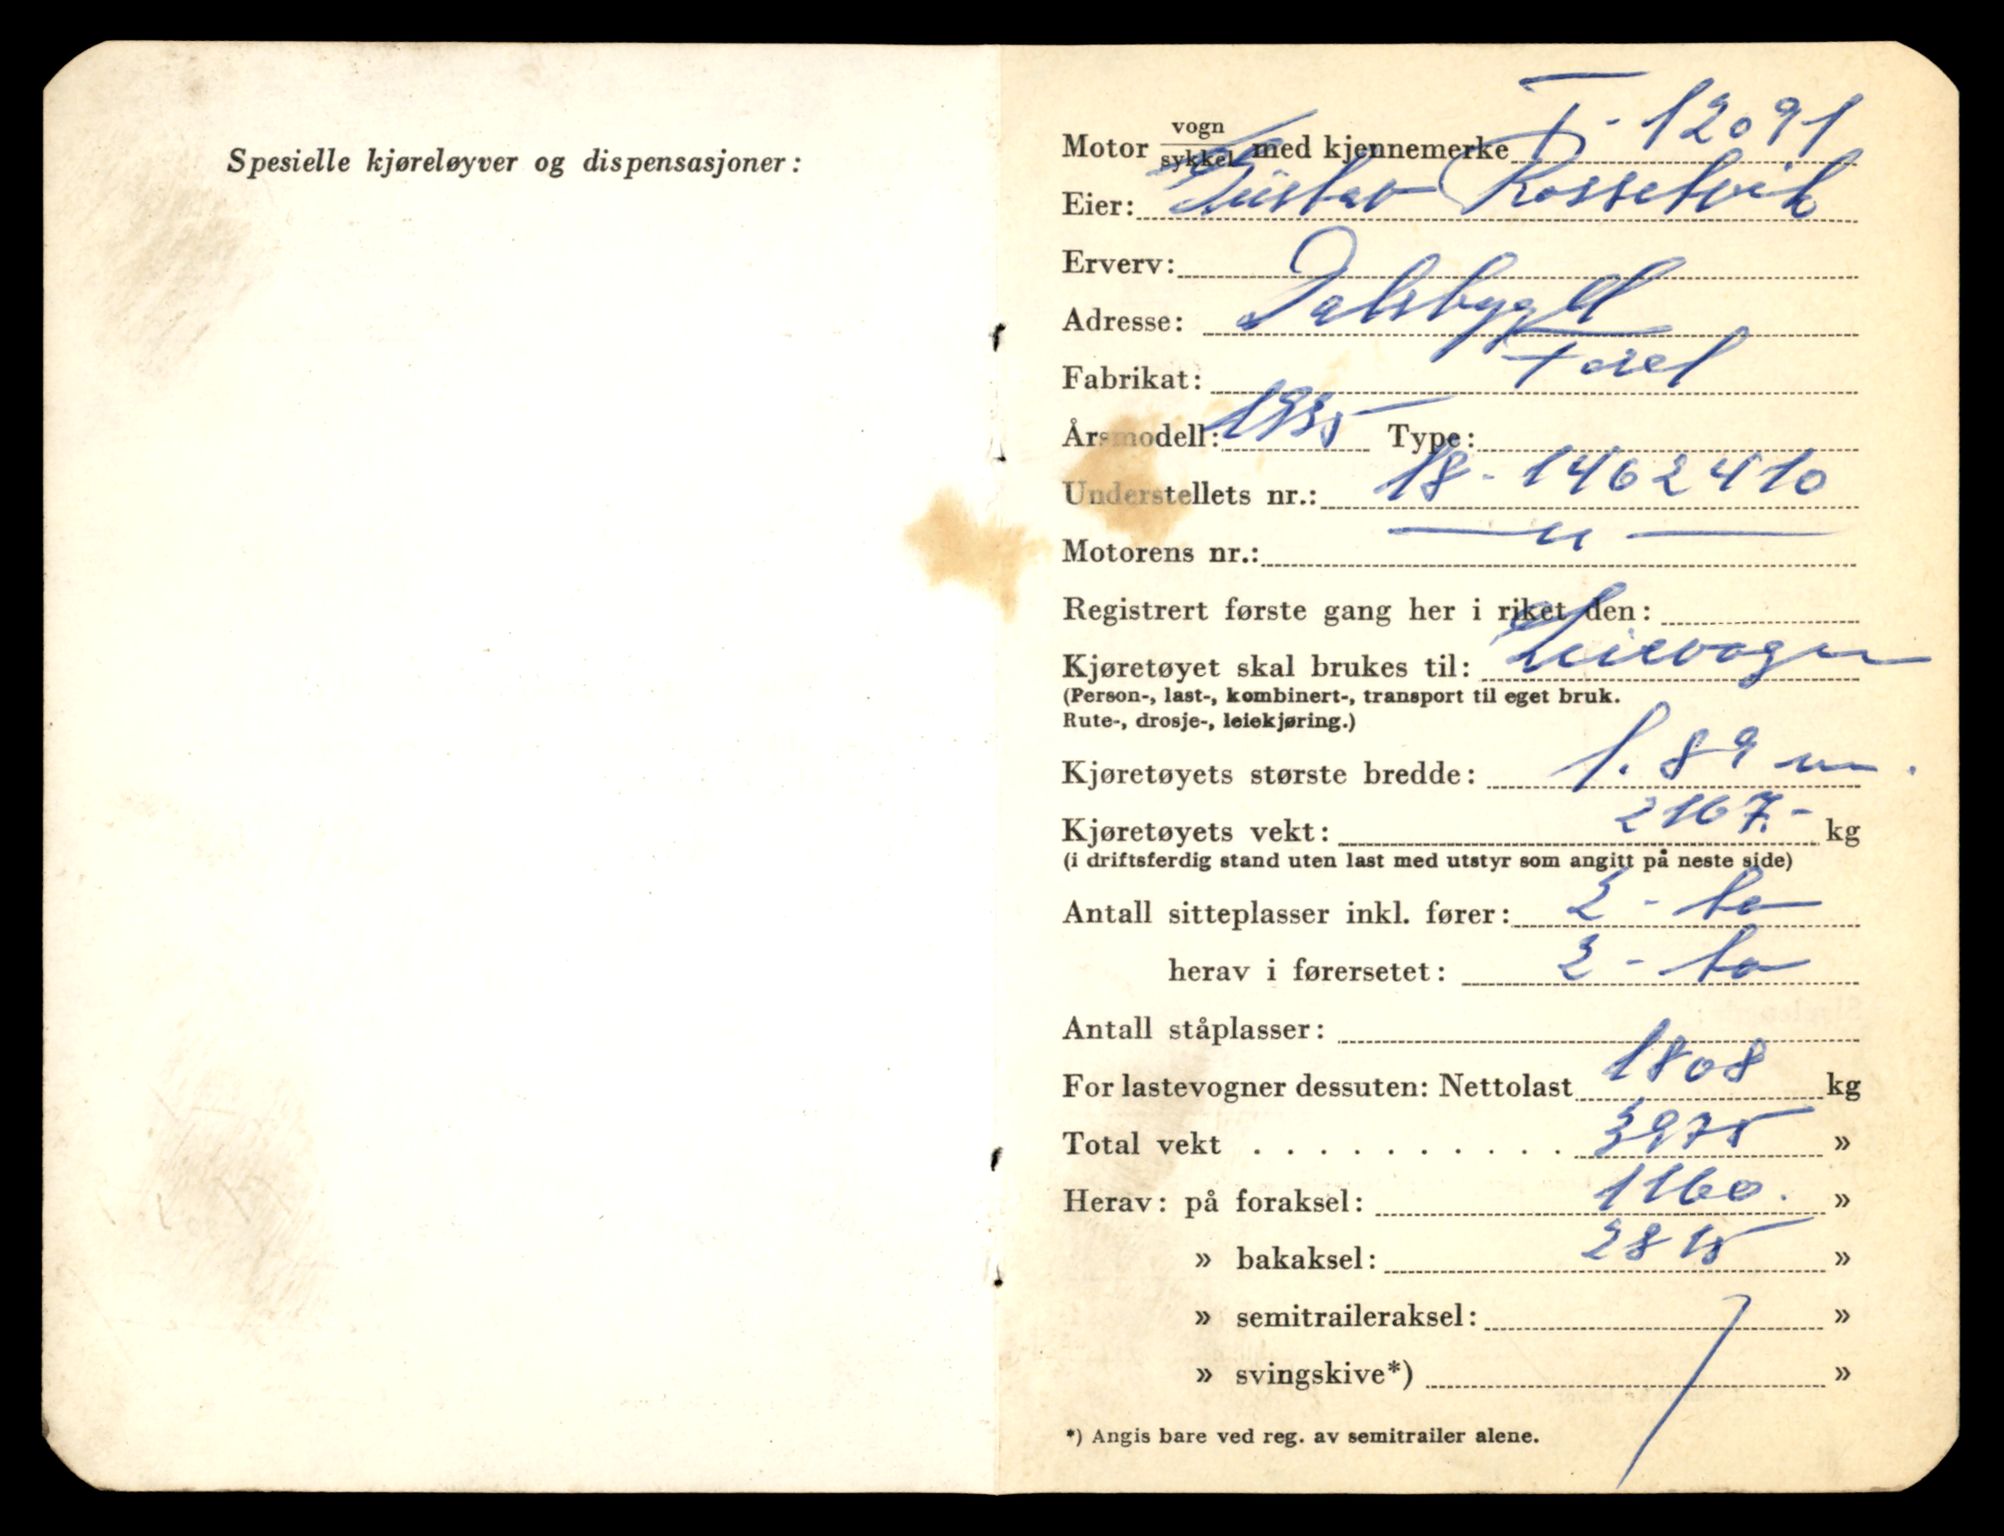 Spesielle kjøreløyver og dispensasjoner:
Motor vogn/sykkel med kjennemerke T-12091
Eier: Gustav Rossetvik
Erverv:
Adresse: Dalsbygd
Fabrikat: Ford
Årsmodell: 1935 Type:
Understellets nr.: 18-1462410
Motorens nr.: — " —
Registrert første gang her i riket den:
Kjøretøyet skal brukes til: Leievogn
(Person-, last-, kombinert-, transport til eget bruk.
Rute-, drosje-, leiekjøring.)
Kjøretøyets største bredde: 1.89 m.
Kjøretøyets vekt: 2167.- kg
(i driftsferdig stand uten last med utstyr som angitt på neste side)
Antall sitteplasser inkl. fører: 2 - to
herav i førersetet: 2 - to
Antall ståplasser:
For lastevogner dessuten: Nettolast 1808 kg
Total vekt . . . . . . . . . . 3975 »
Herav: på foraksel: 1160. »
» bakaksel: 2815 »
» semitraileraksel: »
» svingskive*) »
*) Angis bare ved reg. av semitrailer alene.